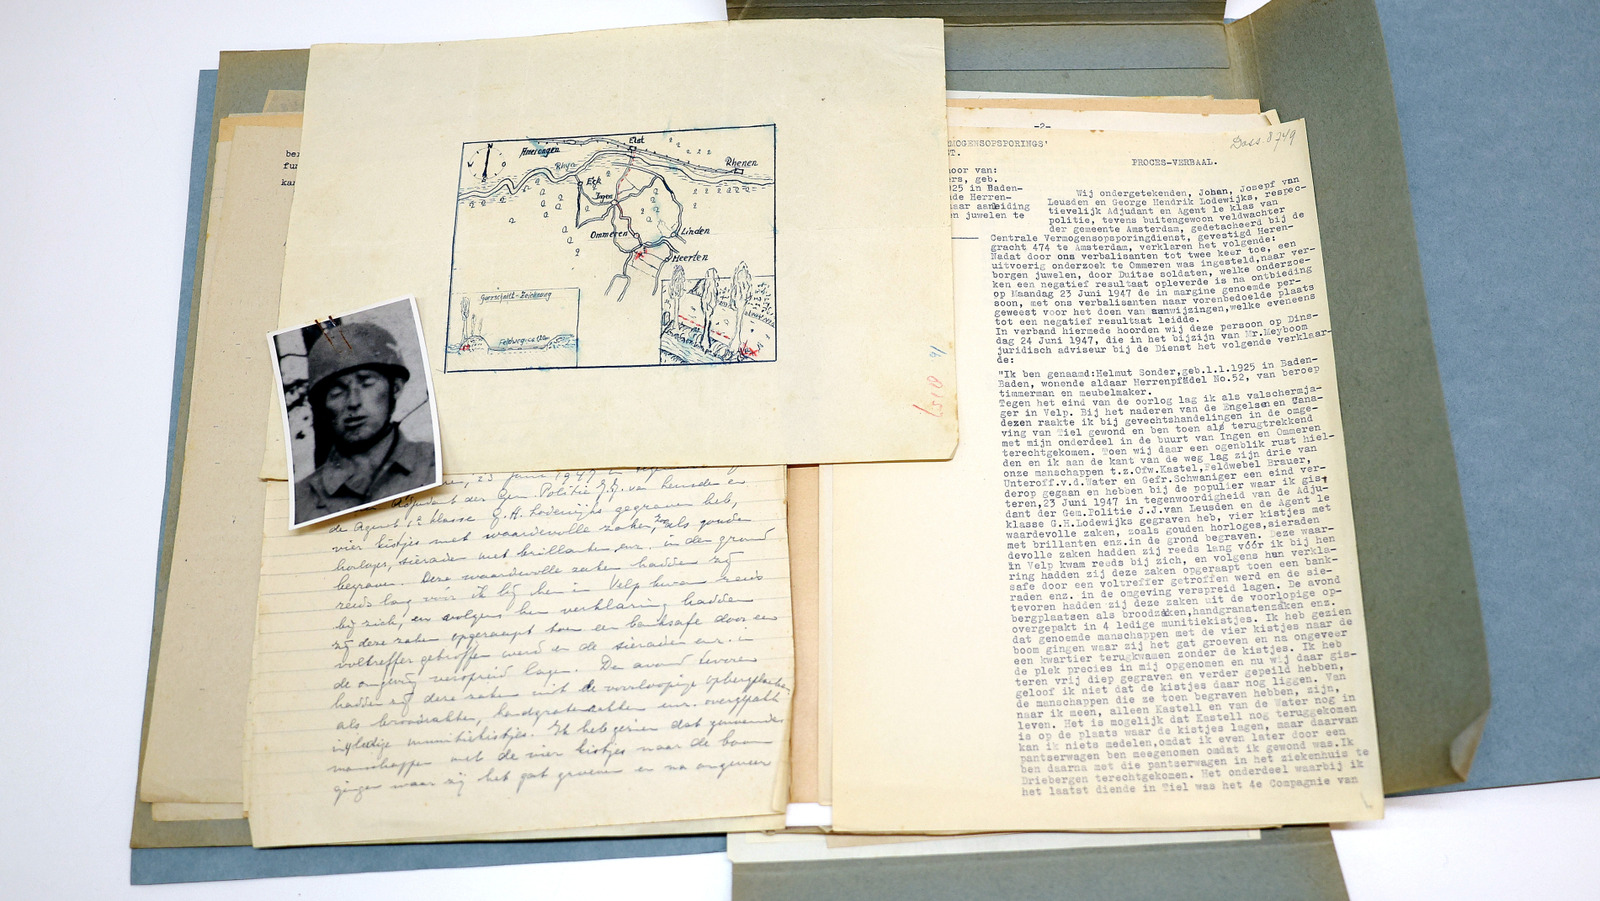 ber
fun
kar
N
W
O
Elst
Amerongen
Rhenen
Rhijn
Eck
Ingen
Ommeren
Linden
Heerlen
Feldweg
-2-
MOGENSOPSPORINGS'
T.
oor van:
ers, geb.
925 in Baden-
nde Herren-
aar aanleiding
n juwelen te
Doss. 8749
PROCES-VERBAAL.
Wij ondergetekenden, Johan, Josepf van
Leusden en George Hendrik Lodewijks, respec-
tievelijk Adjudant en Agent 1e klas van
politie, tevens buitengewoon veldwachter
der gemeente Amsterdam, gedetacheerd bij de
Centrale Vermogensopsporingdienst, gevestigd Heren-
gracht 474 te Amsterdam, verklaren het volgende:
Nadat door ons verbalisanten tot twee keer toe, een
uitvoerig onderzoek te Ommeren was ingesteld,naar ver-
borgen juwelen, door Duitse soldaten, welke onderzoe-
ken een negatief resultaat opleverde is na ontbieding
op Maandag 23 Juni 1947 de in margine genoemde per-
soon, met ons verbalisanten naar vorenbedoelde plaats
geweest voor het doen van aanwijzingen,welke eveneens
tot een negatief resultaat leidde.
In verband hiermede hoorden wij deze persoon op Dins-
dag 24 Juni 1947, die in het bijzijn van Mr.Meyboom
juridisch adviseur bij de Dienst het volgende verklaar-
de:
"Ik ben genaamd:Helmut Sonder,geb.1.1.1925 in Baden-
Baden, wonende aldaar Herrenpfädel No.52, van beroep
timmerman en meubelmaker.
Tegen het eind van de oorlog lag ik als valschermja-
ger in Velp. Bij het naderen van de Engelsen en Cana-
dezen raakte ik bij gevechtshandelingen in de omge-
ving van Tiel gewond en ben toen als terugtrekkend
met mijn onderdeel in de buurt van Ingen en Ommeren
terechtgekomen. Toen wij daar een ogenblik rust hiel-
den en ik aan de kant van de weg lag zijn drie van
onze manschappen t.z.Ofw.Kastel,Feldwebel Brauer,
Unteroff.v.d.Water en Gefr.Schwaniger een eind ver-
derop gegaan en hebben bij de populier waar ik gis-
teren,23 Juni 1947 in tegenwoordigheid van de Adju-
dant der Gem.Politie J.J.van Leusden en de Agent 1e
klasse G.H.Lodewijks gegraven heb, vier kistjes met
waardevolle zaken, zoals gouden horloges,sieraden
met brillanten enz.in de grond begraven. Deze waar-
devolle zaken hadden zij reeds lang vóór ik bij hen
in Velp kwam reeds bij zich, en volgens hun verkla-
ring hadden zij deze zaken opgeraapt toen een bank-
safe door een voltreffer getroffen werd en de sie-
raden enz. in de omgeving verspreid lagen. De avond
tevoren hadden zij deze zaken uit de voorlopige op-
bergplaatsen als broodzakken,handgranatenzaken enz.
overgepakt in 4 ledige munitiekistjes. Ik heb gezien
dat genoemde manschappen met de vier kistjes naar de
boom gingen waar zij het gat groeven en na ongeveer
een kwartier terugkwamen zonder de kistjes. Ik heb
de plek precies in mij opgenomen en nu wij daar gis-
teren vrij diep gegraven en verder gepeild hebben,
geloof ik niet dat de kistjes daar nog liggen. Van
de manschappen die ze toen begraven hebben, zijn,
naar ik meen, alleen Kastell en van de Water nog in
leven. Het is mogelijk dat Kastell nog teruggekomen
is op de plaats waar de kistjes lagen, maar daarvan
kan ik niets medelen,omdat ik even later door een
pantserwagen ben meegenomen omdat ik gewond was.Ik
ben daarna met die pantserwagen in het ziekenhuis te
Driebergen terechtgekomen. Het onderdeel waarbij ik
het laatst diende in Tiel was het 4e Compagnie van
23 Juni 1947
Adjudant der Gem. Politie J.J. van Leusden en
de Agent 1e klasse G.H. Lodewijks gegraven heb,
vier kistjes met waardevolle zaken, zoals gouden
horloges, sieraden met brillanten enz. in de grond
begraven. Deze waardevolle zaken hadden zij
reeds lang voor ik bij hen in Velp kwam reeds
bij zich, en volgens hun verklaring hadden
zij deze zaken opgeraapt toen een banksafe door een
voltreffer getroffen werd en de sieraden enz. in
de omgeving verspreid lagen. De avond tevoren
hadden zij deze zaken uit de voorloopige opbergplaatsen
als broodzakken, handgranatzakken enz. overgepakt
in ledige munitiekistjes. Ik heb gezien dat genoemde
manschappen met de vier kistjes naar de boom
gingen waar zij het gat groeven en na ongeveer